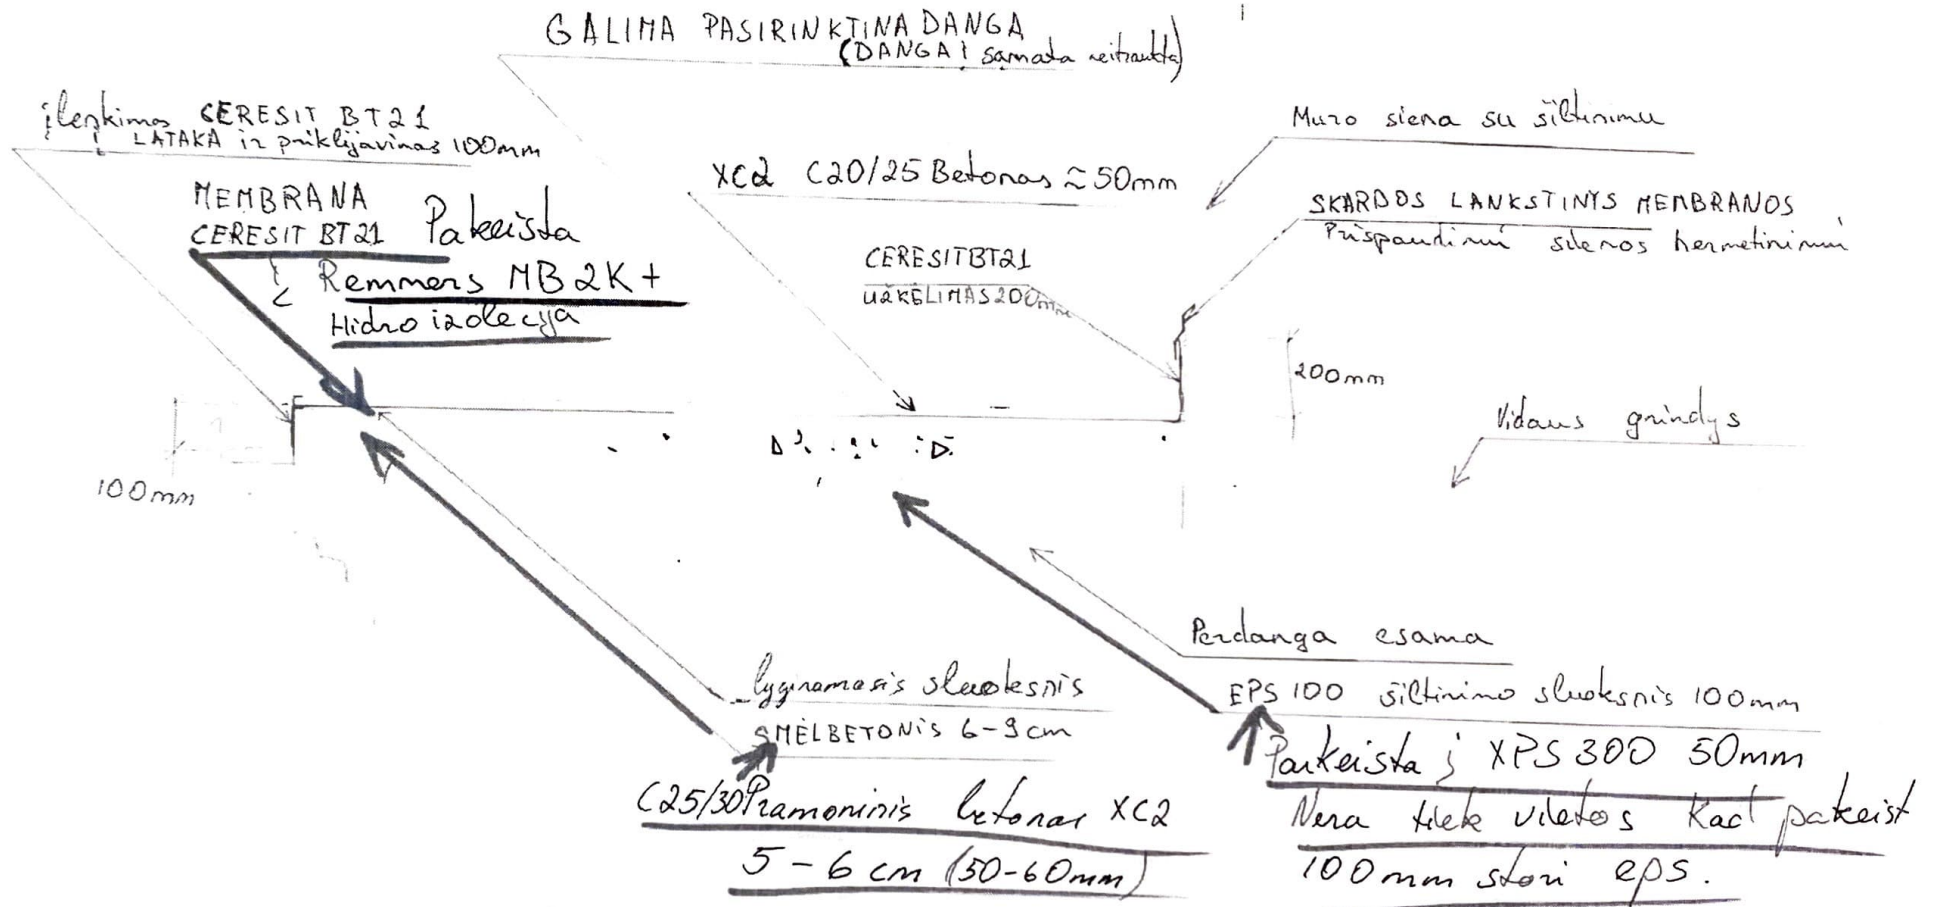 GALIMA PASIRINKTINA DANGA
(DANGA Į samata neitraukta)
įlenkimas CERESIT BT21
Į LATAKA ir priklijavimas 100mm
MEMBRANA
CERESIT BT21 Pakeista
Į Remmers MB 2K+
Hidro izolecija
XC2 C20/25 Betonas ≈50mm
CERESIT BT21
UŽKĖLIMAS 200mm
Muro siena su šiltinimu
SKARDOS LANKSTINYS MEMBRANOS
Prispaudimui sienos hermetinimui
200mm
Vidaus grindys
100mm
Perdanga esama
lyginamasis sluoksnis
SMĖLBETONIS 6-9cm
C25/30 Pramoninis betonas XC2
5-6cm (50-60mm)
EPS 100 šiltinimo sluoksnis 100mm
Parkeista į XPS 300 50mm
Nera tiek vietos Kad pakeist
100mm stori eps.